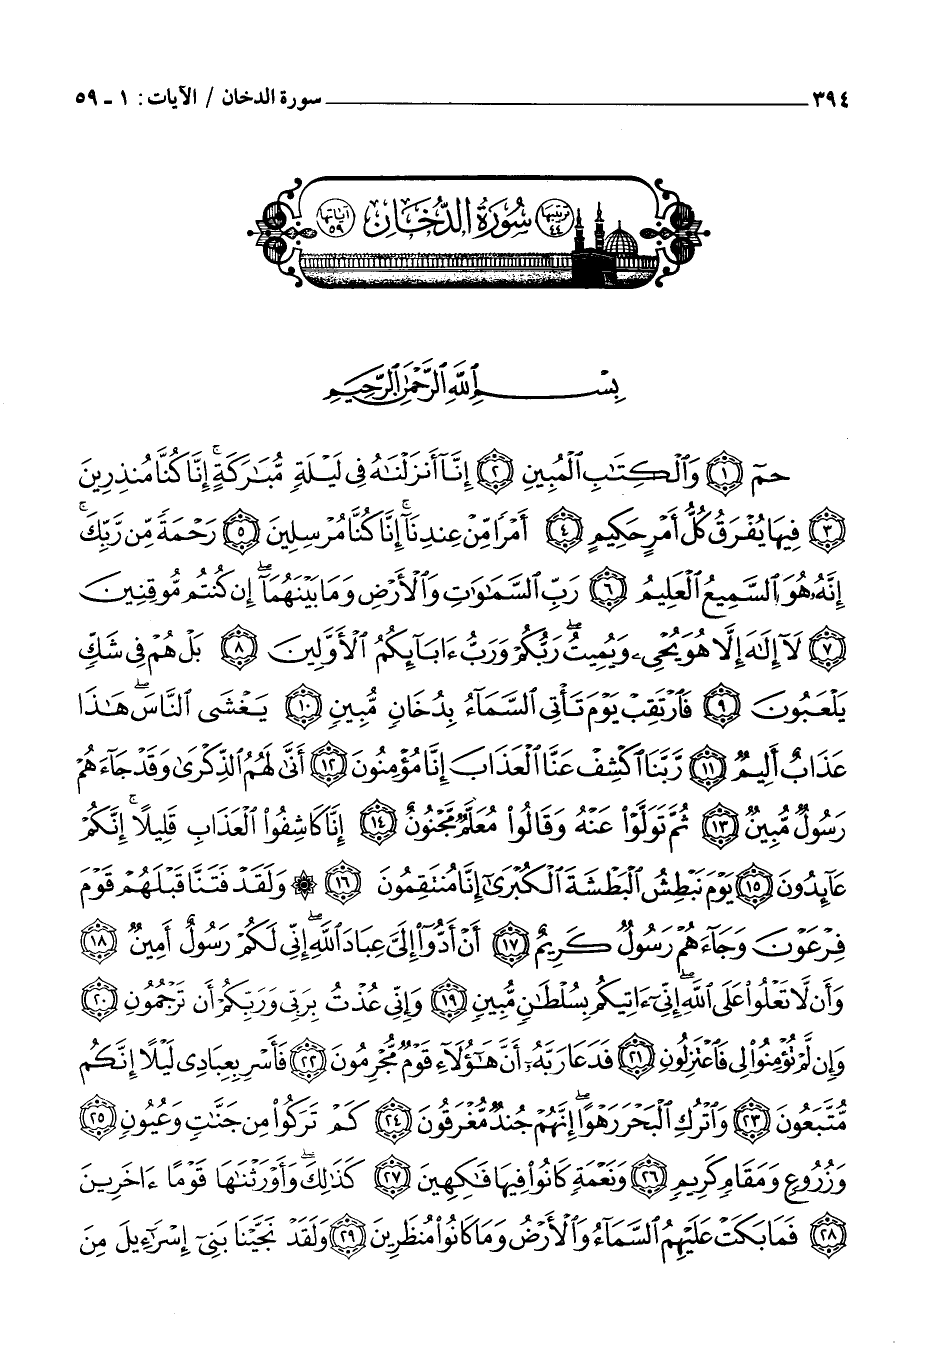 ٣٩٤ سورة الدخان / الآيات: ١ - ٥٩
ترتيبها ٤٤ سُورَةُ الدُّخَانِ آياتها ٥٩
بِسْمِ ٱللَّهِ ٱلرَّحْمَٰنِ ٱلرَّحِيمِ
حمٓ ١ وَٱلْكِتَٰبِ ٱلْمُبِينِ ٢ إِنَّآ أَنزَلْنَٰهُ فِى لَيْلَةٍ مُّبَٰرَكَةٍ ۚ إِنَّا كُنَّا مُنذِرِينَ
٣ فِيهَا يُفْرَقُ كُلُّ أَمْرٍ حَكِيمٍ ٤ أَمْرًا مِّنْ عِندِنَآ ۚ إِنَّا كُنَّا مُرْسِلِينَ ٥ رَحْمَةً مِّن رَّبِّكَ ۚ
إِنَّهُۥ هُوَ ٱلسَّمِيعُ ٱلْعَلِيمُ ٦ رَبِّ ٱلسَّمَٰوَٰتِ وَٱلْأَرْضِ وَمَا بَيْنَهُمَآ ۖ إِن كُنتُم مُّوقِنِينَ
٧ لَآ إِلَٰهَ إِلَّا هُوَ يُحْىِۦ وَيُمِيتُ ۖ رَبُّكُمْ وَرَبُّ ءَابَآئِكُمُ ٱلْأَوَّلِينَ ٨ بَلْ هُمْ فِى شَكٍّ
يَلْعَبُونَ ٩ فَٱرْتَقِبْ يَوْمَ تَأْتِى ٱلسَّمَآءُ بِدُخَانٍ مُّبِينٍ ١٠ يَغْشَى ٱلنَّاسَ ۖ هَٰذَا
عَذَابٌ أَلِيمٌ ١١ رَّبَّنَا ٱكْشِفْ عَنَّا ٱلْعَذَابَ إِنَّا مُؤْمِنُونَ ١٢ أَنَّىٰ لَهُمُ ٱلذِّكْرَىٰ وَقَدْ جَآءَهُمْ
رَسُولٌ مُّبِينٌ ١٣ ثُمَّ تَوَلَّوْا۟ عَنْهُ وَقَالُوا۟ مُعَلَّمٌ مَّجْنُونٌ ١٤ إِنَّا كَاشِفُوا۟ ٱلْعَذَابِ قَلِيلًا ۚ إِنَّكُمْ
عَآئِدُونَ ١٥ يَوْمَ نَبْطِشُ ٱلْبَطْشَةَ ٱلْكُبْرَىٰٓ إِنَّا مُنتَقِمُونَ ١٦ ۞ وَلَقَدْ فَتَنَّا قَبْلَهُمْ قَوْمَ
فِرْعَوْنَ وَجَآءَهُمْ رَسُولٌ كَرِيمٌ ١٧ أَنْ أَدُّوٓا۟ إِلَىَّ عِبَادَ ٱللَّهِ ۖ إِنِّى لَكُمْ رَسُولٌ أَمِينٌ ١٨
وَأَن لَّا تَعْلُوا۟ عَلَى ٱللَّهِ ۖ إِنِّىٓ ءَاتِيكُم بِسُلْطَٰنٍ مُّبِينٍ ١٩ وَإِنِّى عُذْتُ بِرَبِّى وَرَبِّكُمْ أَن تَرْجُمُونِ ٢٠
وَإِن لَّمْ تُؤْمِنُوا۟ لِى فَٱعْتَزِلُونِ ٢١ فَدَعَا رَبَّهُۥٓ أَنَّ هَٰٓؤُلَآءِ قَوْمٌ مُّجْرِمُونَ ٢٢ فَأَسْرِ بِعِبَادِى لَيْلًا إِنَّكُم
مُّتَّبَعُونَ ٢٣ وَٱتْرُكِ ٱلْبَحْرَ رَهْوًا ۖ إِنَّهُمْ جُندٌ مُّغْرَقُونَ ٢٤ كَمْ تَرَكُوا۟ مِن جَنَّٰتٍ وَعُيُونٍ ٢٥
وَزُرُوعٍ وَمَقَامٍ كَرِيمٍ ٢٦ وَنَعْمَةٍ كَانُوا۟ فِيهَا فَٰكِهِينَ ٢٧ كَذَٰلِكَ ۖ وَأَوْرَثْنَٰهَا قَوْمًا ءَاخَرِينَ
٢٨ فَمَا بَكَتْ عَلَيْهِمُ ٱلسَّمَآءُ وَٱلْأَرْضُ وَمَا كَانُوا۟ مُنظَرِينَ ٢٩ وَلَقَدْ نَجَّيْنَا بَنِىٓ إِسْرَٰٓءِيلَ مِنَ